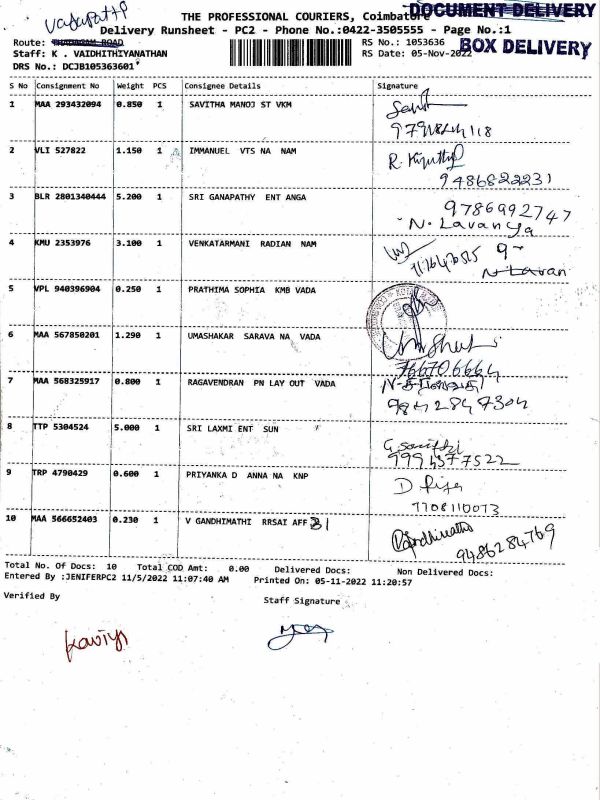 Vadapatti
THE PROFESSIONAL COURIERS, Coimbatore
DOCUMENT DELIVERY
Delivery Runsheet - PC2 - Phone No.:0422-3505555 - Page No.:1
Route: THADAGAM ROAD RS No.: 1053636 BOX DELIVERY
Staff: K . VAIDHITHIYANATHAN RS Date: 05-Nov-2022
DRS No.: DCJB105363601
S No Consignment No Weight PCS Consignee Details Signature
1 MAA 293432094 0.850 1 SAVITHA MANOJ ST VKM
2 VLI 527822 1.150 1 IMMANUEL VTS NA NAM
9486822231
3 BLR 2801340444 5.200 1 SRI GANAPATHY ENT ANGA
9786992747
N. Lavanya
4 KMU 2353976 3.100 1 VENKATARMANI RADIAN NAM
5 VPL 940396904 0.250 1 PRATHIMA SOPHIA KMB VADA
6 MAA 567850201 1.290 1 UMASHAKAR SARAVA NA VADA
7667066664
7 MAA 568325917 0.800 1 RAGAVENDRAN PN LAY OUT VADA
9842847304
8 TTP 5304524 5.000 1 SRI LAXMI ENT SUN
9994377522
9 TRP 4790429 0.600 1 PRIYANKA D ANNA NA KNP
7708110073
10 MAA 566652403 0.230 1 V GANDHIMATHI RRSAI AFF B1
9486284769
Total No. Of Docs: 10 Total COD Amt: 0.00 Delivered Docs: Non Delivered Docs:
Entered By :JENIFERPC2 11/5/2022 11:07:40 AM Printed On: 05-11-2022 11:20:57
Verified By Staff Signature
Kaviya